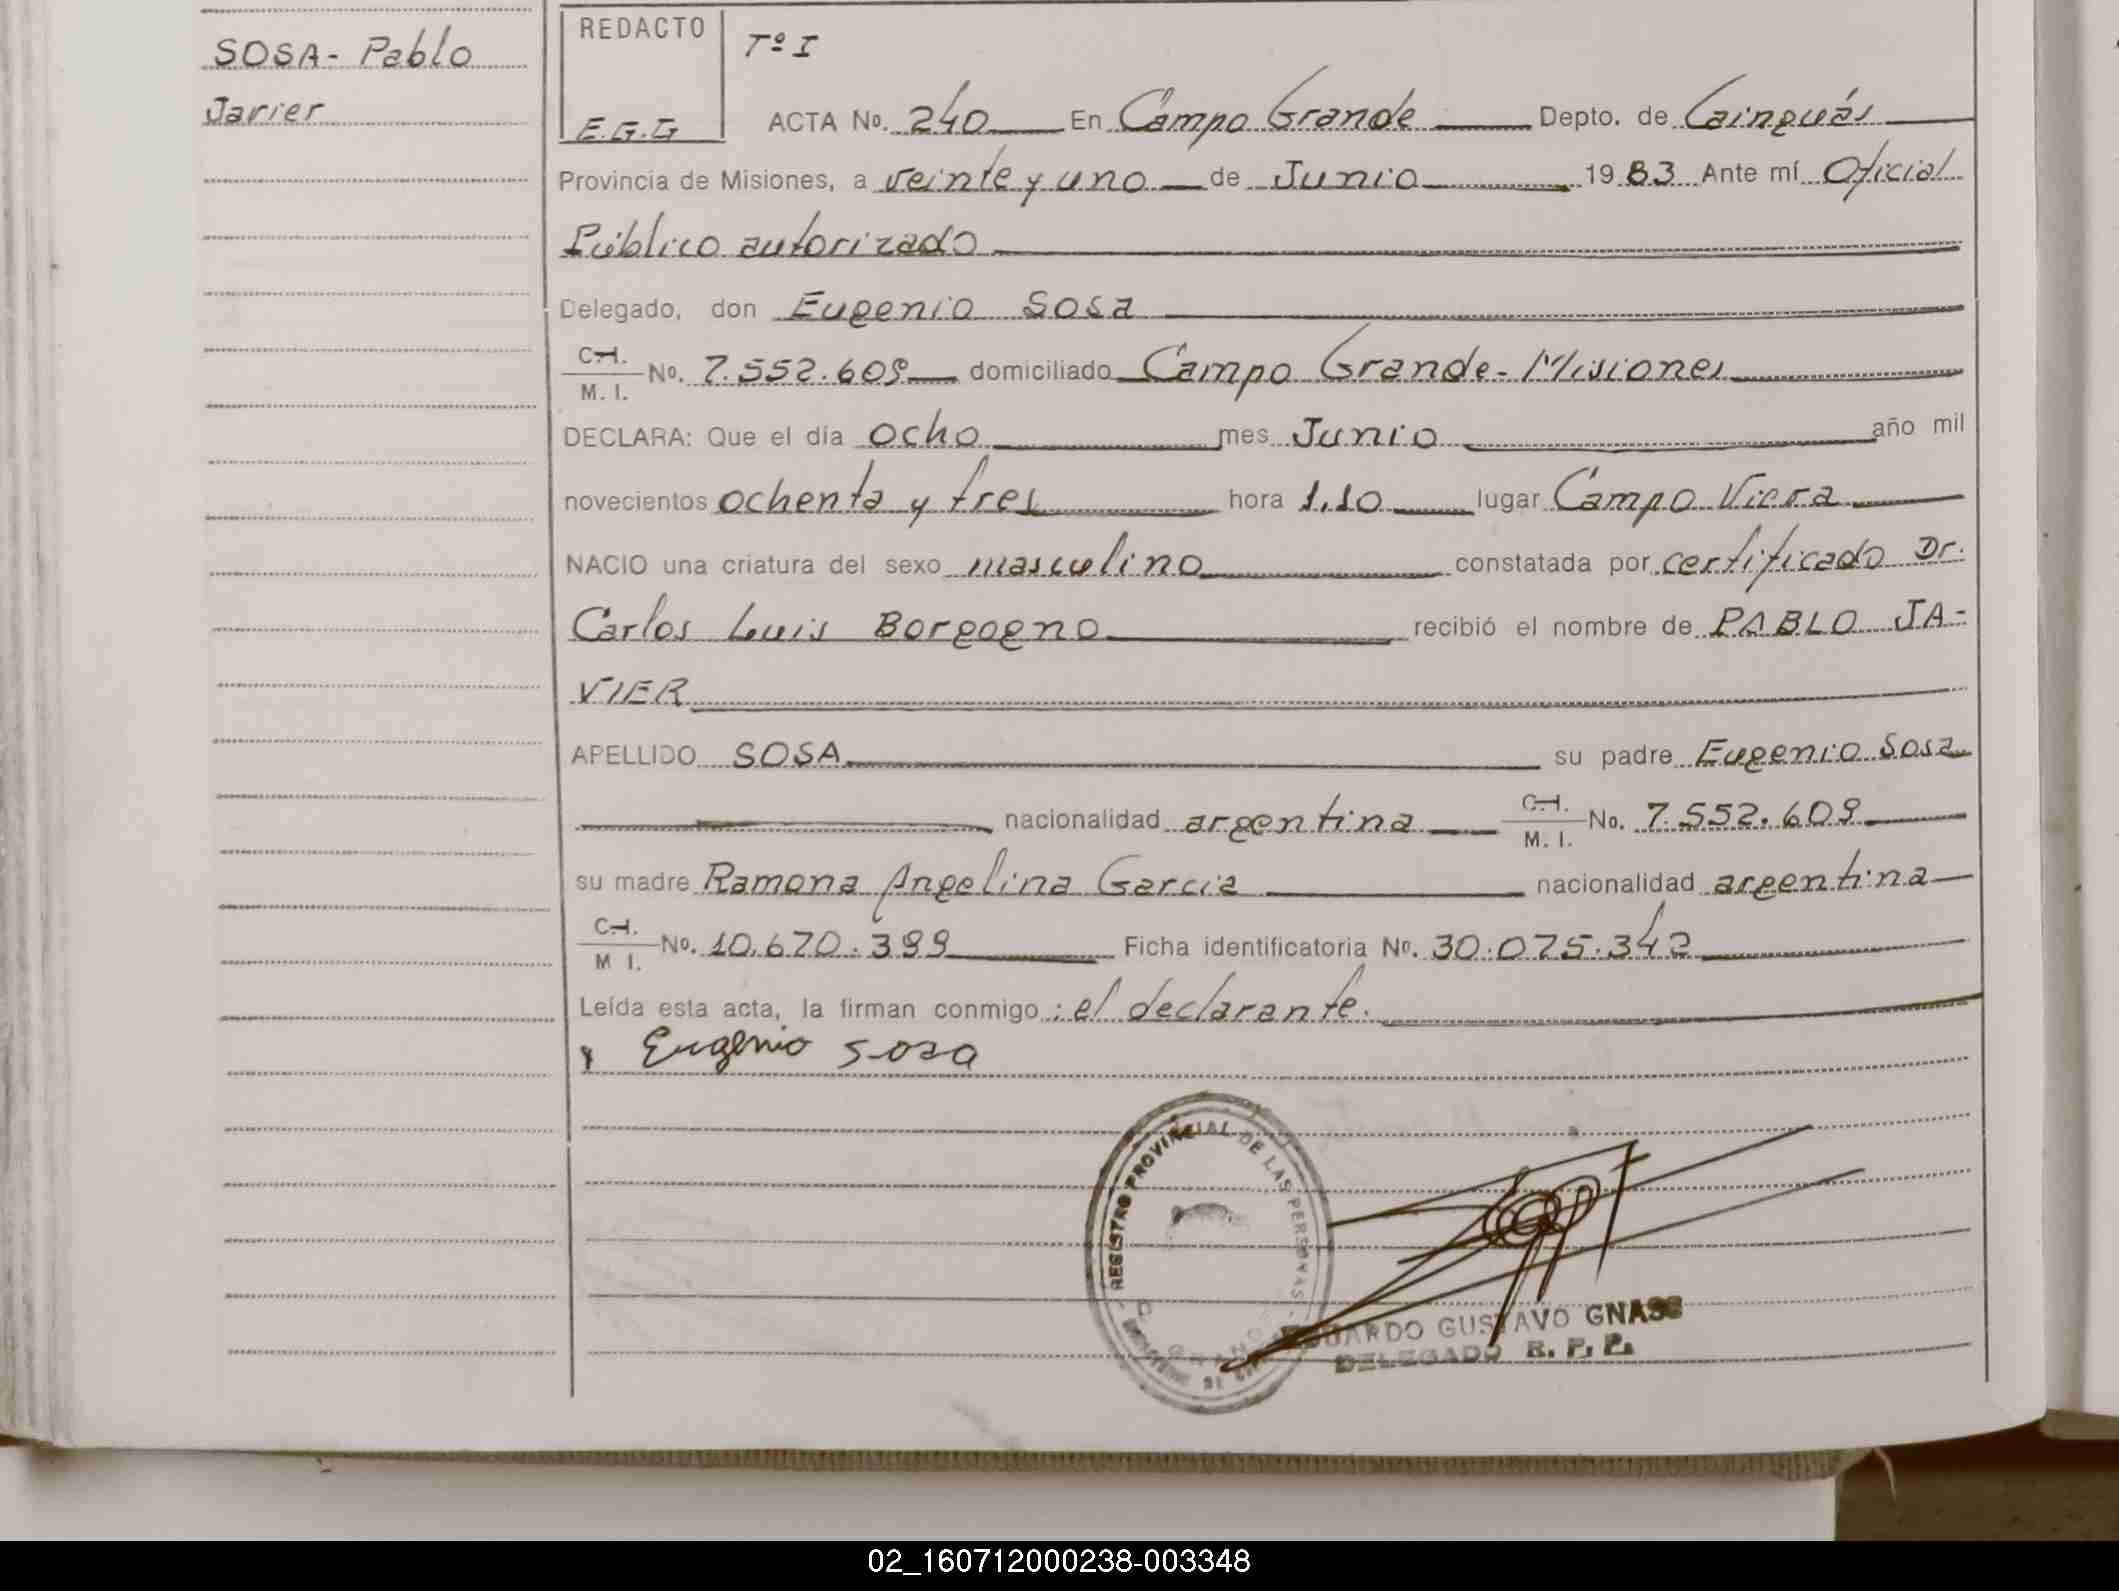 SOSA - Pablo
Javier
REDACTO
E.G.G
Tº I
ACTA No. 240 En Campo Grande Depto. de Cainguás
Provincia de Misiones, a veinte y uno de Junio 1983 Ante mí Oficial
Público autorizado
Delegado, don Eugenio Sosa
C.I.
M. I. No. 7.552.609 domiciliado Campo Grande - Misiones
DECLARA: Que el día ocho mes Junio año mil
novecientos ochenta y tres hora 1.10 lugar Campo Viera
NACIO una criatura del sexo masculino constatada por certificado Dr.
Carlos Luis Borgogno recibió el nombre de PABLO JA-
VIER
APELLIDO SOSA su padre Eugenio Sosa
nacionalidad argentina C.I.
M. I. No. 7.552.609
su madre Ramona Angelina Garcia nacionalidad argentina
C.I.
M I. No. 10.670.399 Ficha identificatoria No. 30.075.342
Leída esta acta, la firman conmigo: el declarante.
Eugenio Sosa
REGISTRO PROVINCIAL DE LAS PERSONAS
EDUARDO GUSTAVO GNASS
DELEGADO R. P. P.
02_160712000238-003348